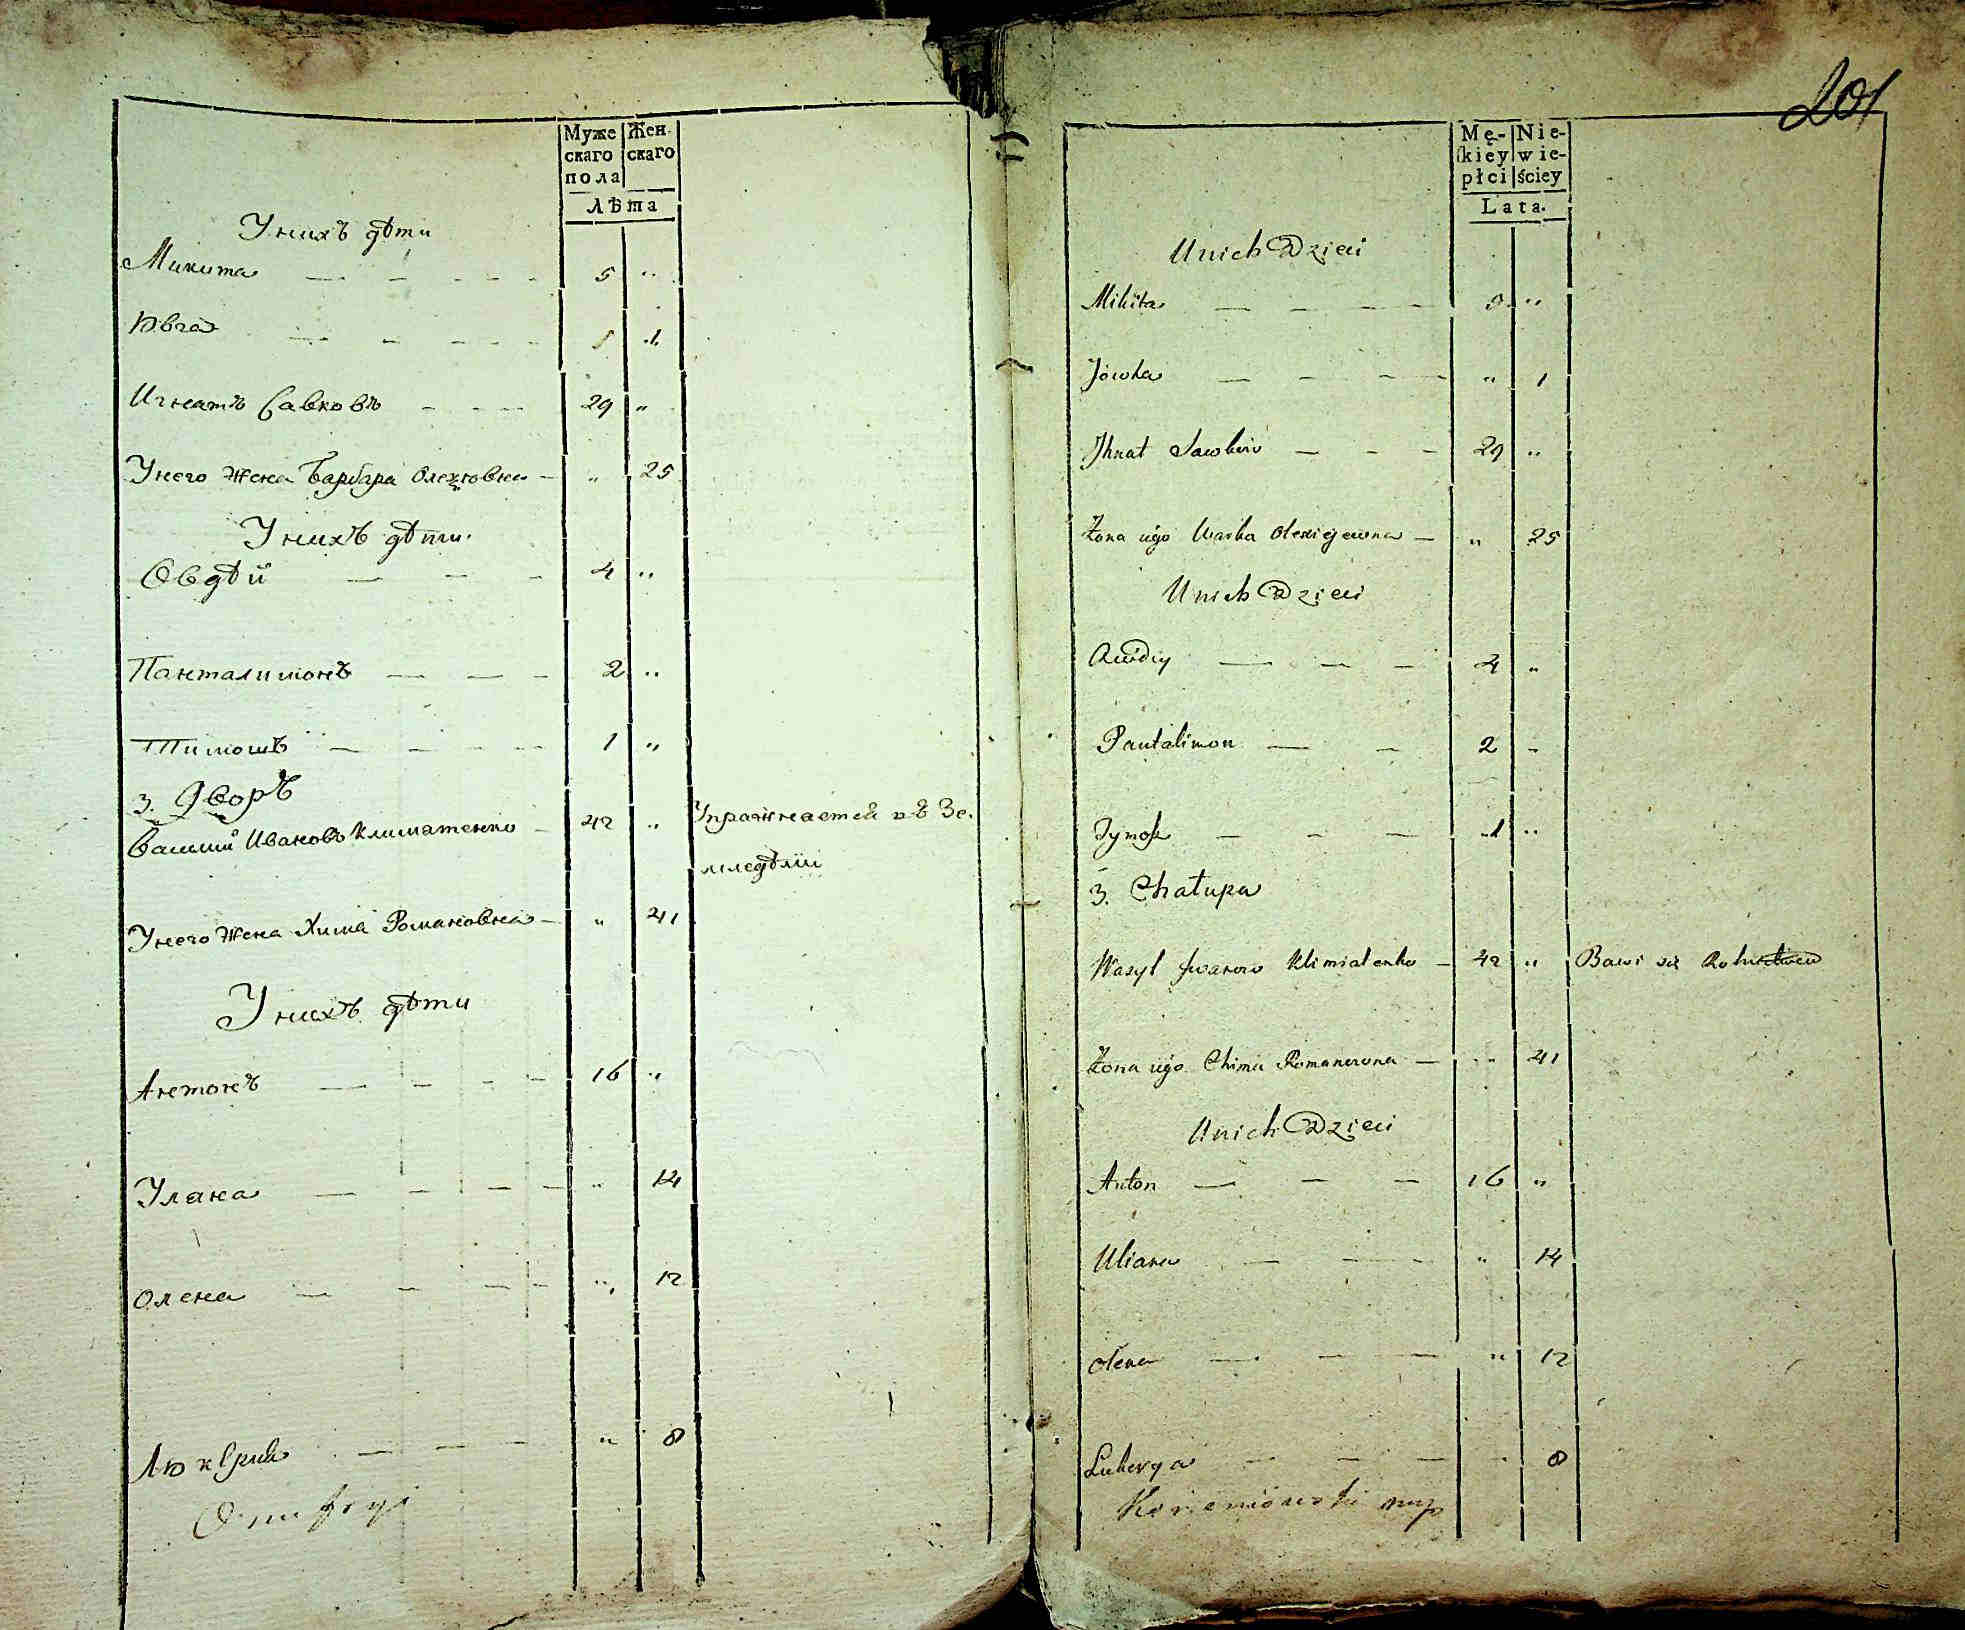 Муже Жен-
скаго скаго
пола
Лѣта
У нихъ дѣти
Микита — — - - - 5 "
Ювга — - - - - 1
Игнатъ Савковъ - - - 29 "
У него жена Барбара — " 25
У нихъ дѣти.
Овдѣй — — - 4 "
Панталимонъ — — - 2 "
Тимошъ — - - - - 1 "
3. Дворъ
Василий Ивановъ Климатенко — 42 " Упражнается въ Зе.
мледѣлии
У него жена Хима Романовна — " 41
У нихъ дѣти
Антонъ — - - - 16 "
Улана — - - - - " 14
Олена — - - - " 12
Люкѣрия — — - " 8
Onufryi
201
Mę- Nie-
skiey wie-
płci ściey
Lata.
U nich Dzieci
Mikita — — — - "
Jówka — — - - " 1
Jhnat Sawkow — — - 29 "
Żona iigo Warka Olexieiewna — " 25
U nich Dzieci
Awdiy — — - 4 "
Pantalimon — - 2 -
Tymosz — — — " 1 "
3. Chałupa
Wasyl Jwanow Klimiatenko — 42 " Bawi się
Żona iigo Chima Romanowna — " 41
U nich Dzieci
Anton — — — 16 "
Uliana — — - " 14
Olena — — — " 12
Lukerya — — — - 8
mp